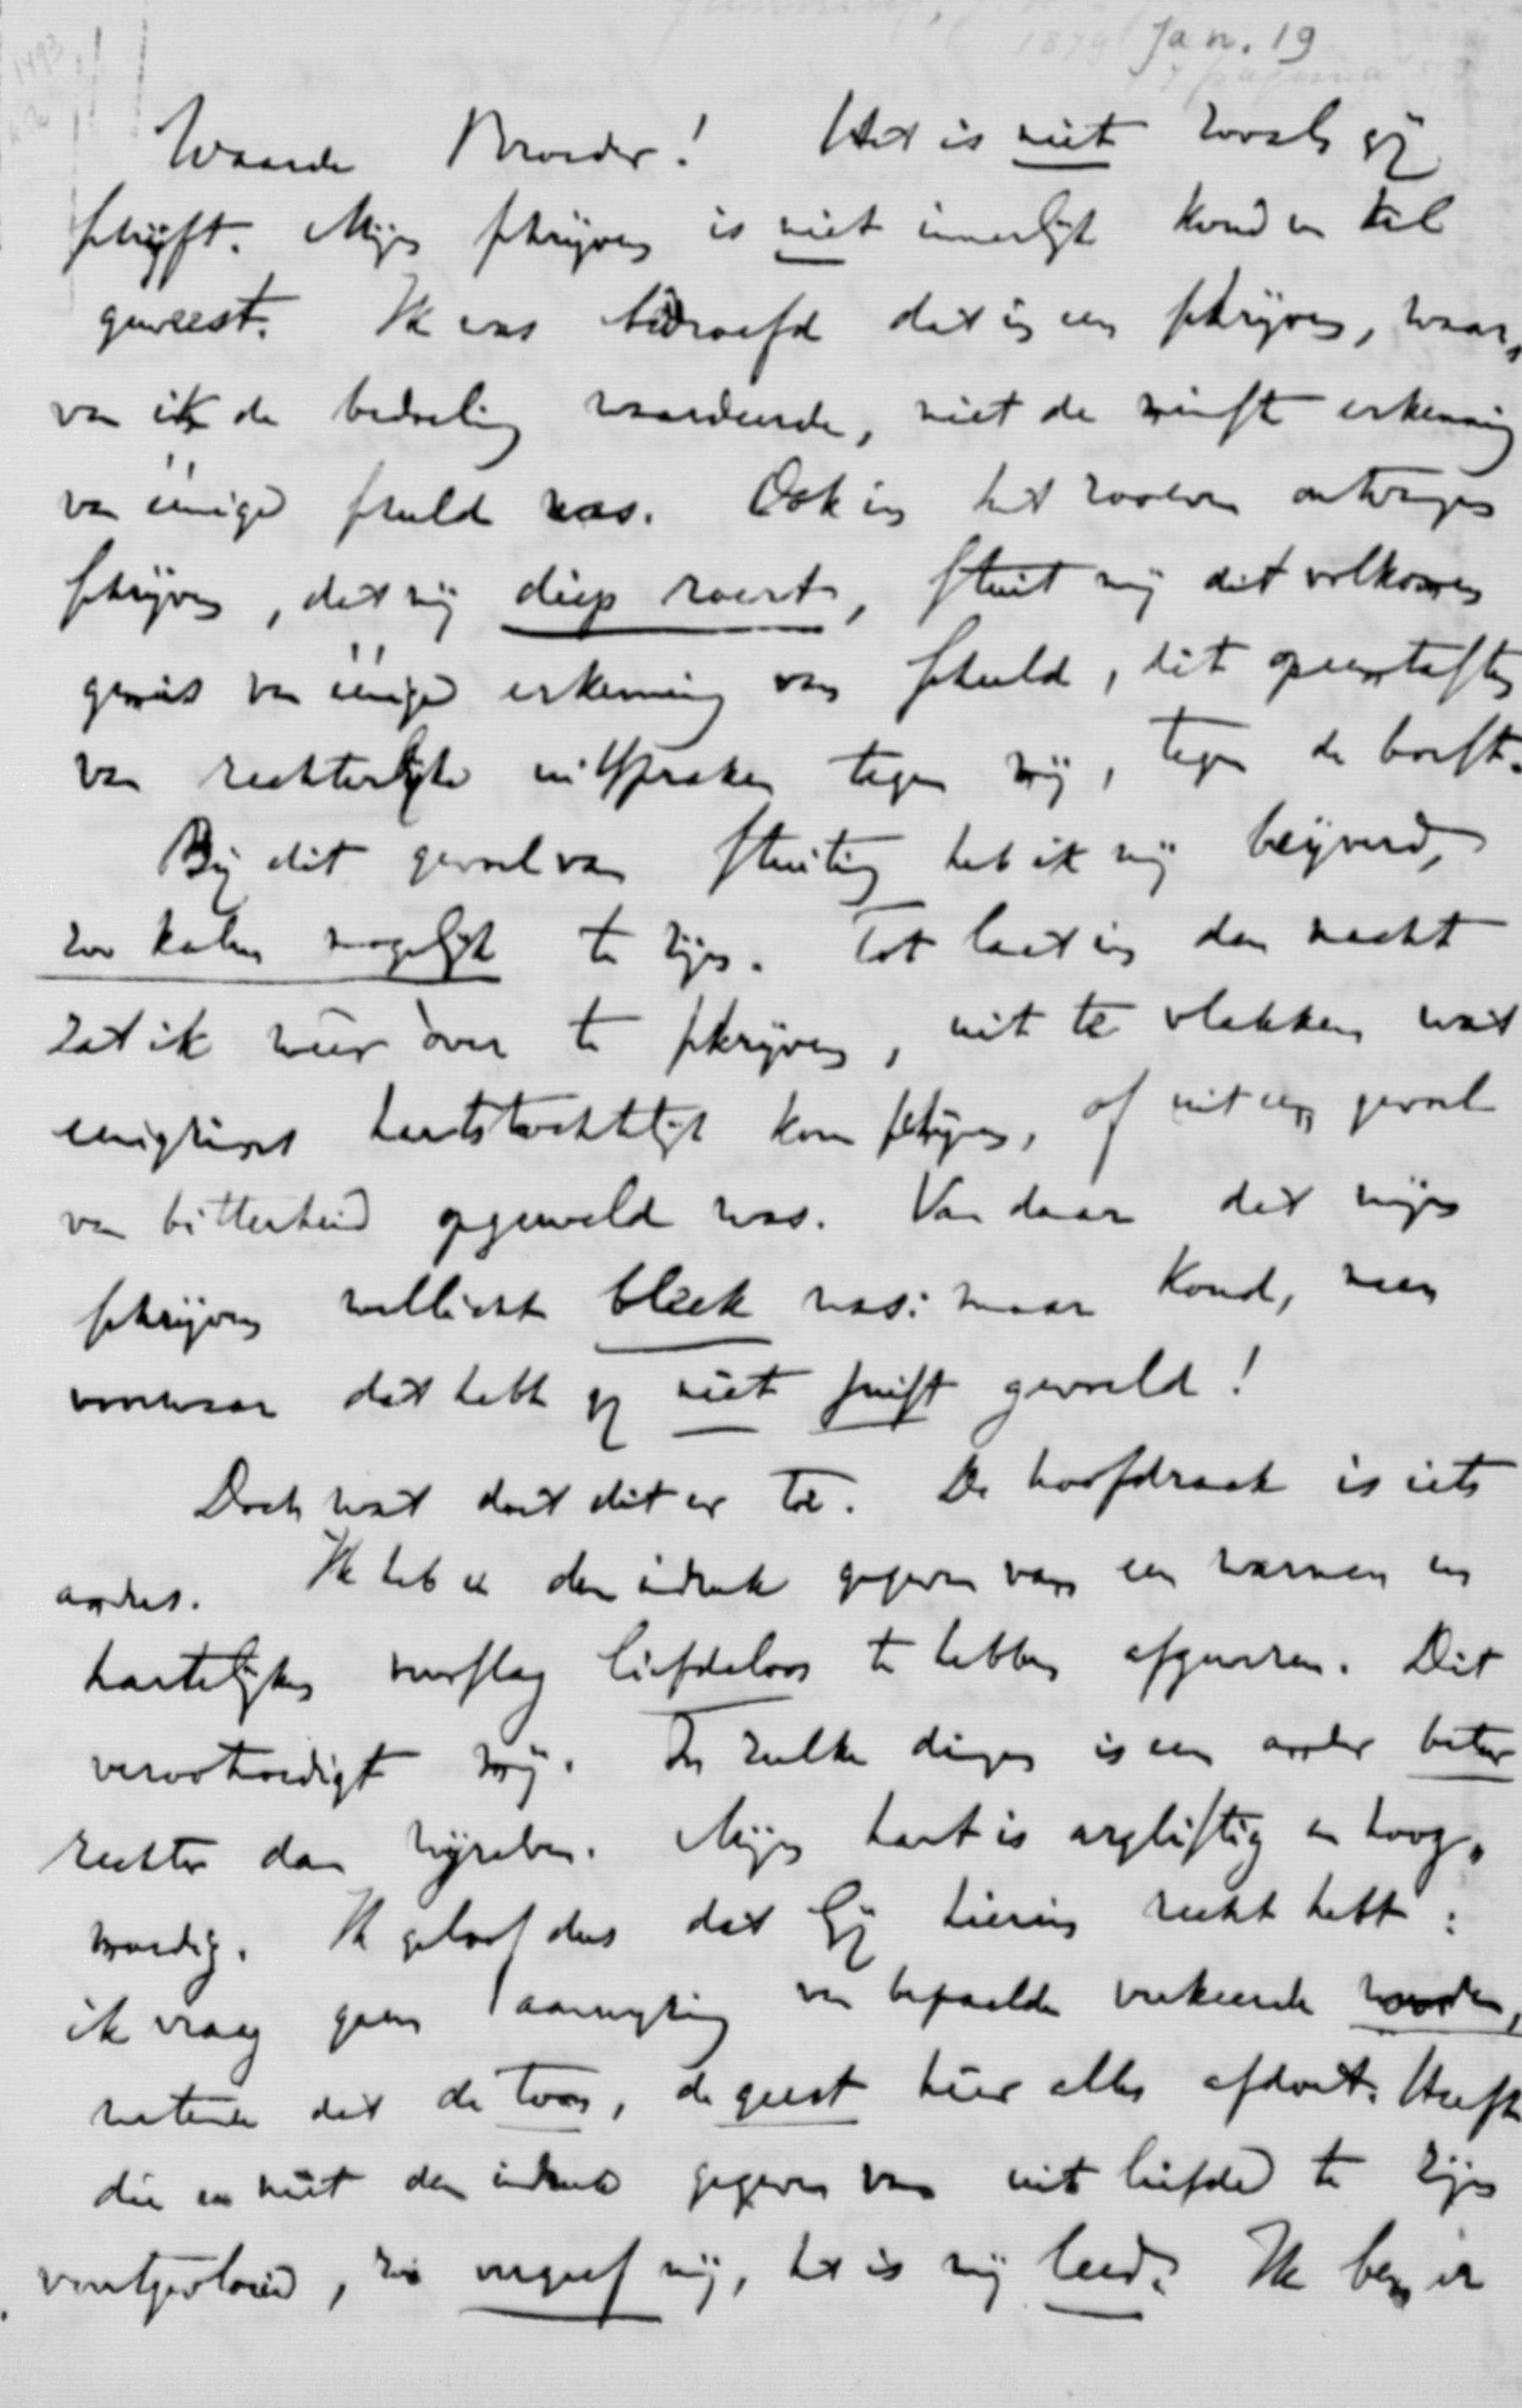 1879 Jan. 19
Waarde Broeder! Het is niet zooals gij
schrijft. Mijn schrijven is niet innerlijk koud en kil
geweest. Ik was bedroefd dat in een schrijven, waar„
van ik de bedoeling waardeerde, niet de minste erkenning
van éénige schuld was. Ook in het zooeven ontvangen
schrijven, dat mij diep roert, stuit mij dit volkomen
gemis van éénige erkenning van schuld, dit opeenstaplen
van rechterlijke uitspraken tegen mij, tegen de borst.
Bij dit gevoel van stuiting heb ik mij beijverd,
zoo kalm mogelijk te zijn. Tot laat in den nacht
zat ik weer over te schrijven, uit te vlakken wat
eenigzins hartstochtelijk kon schijnen, of uit een gevoel
van bitterheid opgeweld was. Van daar dat mijn
schrijven wellicht bleek was: maar koud, neen
voorwaar dat hebt gij niet juist gevoeld!
Doch wat doet dit er toe. De hoofdzaak is iets
anders. Ik heb u den indruk gegeven van een warmen en
hartelijken liefdeloos te hebben afgewezen. Dit
verootmoedigt mij. In zulke dingen is een ander beter
rechter dan wijzelven. Mijn hart is arglistig en hoog„
moedig. Ik geloof dus dat Gij hierin recht hebt:
ik vraag geen aanwijzing van bepaalde verkeerde woorden,
wetende dat de toon, de geest hier alles afdoet. Heeft
die u niet den indruk gegeven van uit liefde te zijn
voortgevloeid, zoo vergeef mij, het is mij leed. Ik ben er